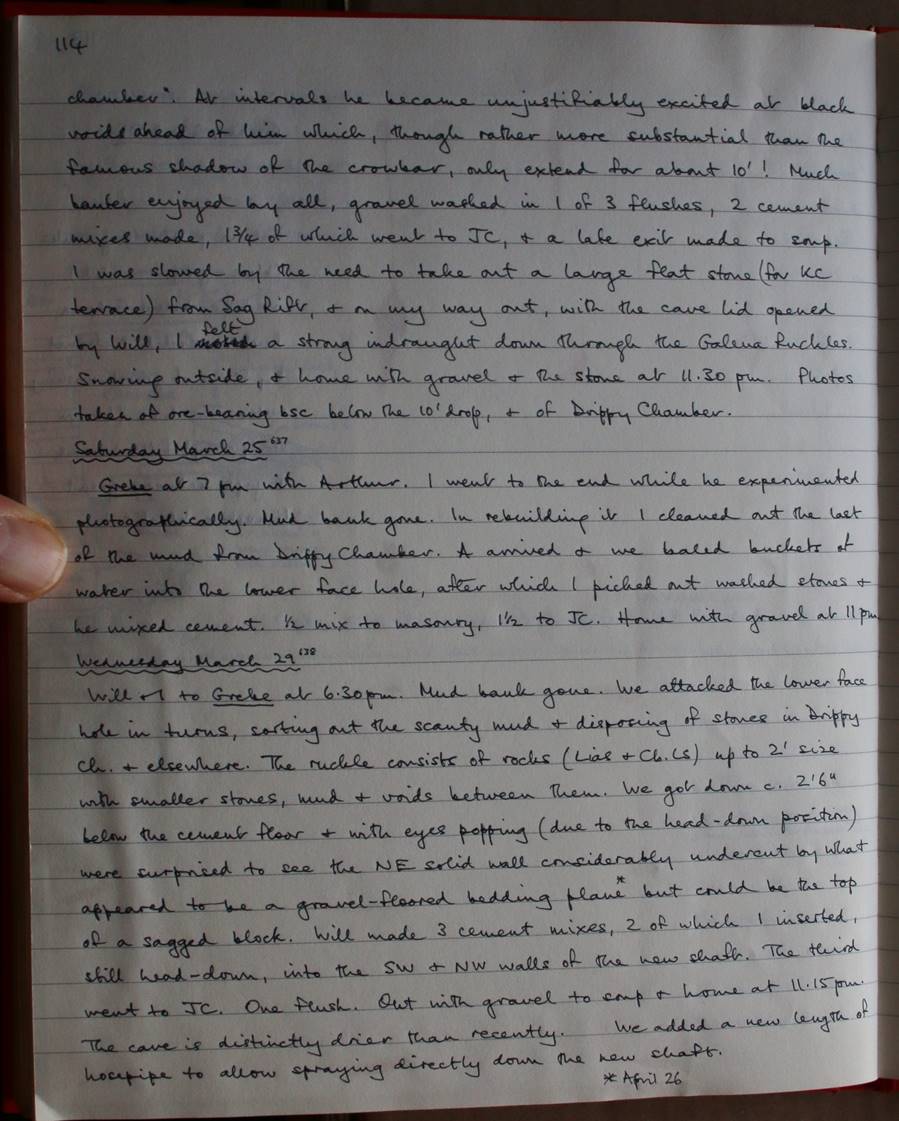 114
chamber". At intervals he became unjustifiably excited at black
voids ahead of him which, though rather more substantial than the
famous shadow of the crowbar, only extend for about 10'! Much
banter enjoyed by all, gravel washed in 1 of 3 flushes, 2 cement
mixes made, 1¾ of which went to JC, & a late exit made to soup.
I was slowed by the need to take out a large flat stone (for KC
terrace) from Sag Rift, & on my way out, with the cave lid opened
by Will, I felt a strong indraught down through the Galena Ruckles.
Snowing outside, & home with gravel & the stone at 11.30 pm. Photos
taken of ore-bearing bsc below the 10' drop, & of Drippy Chamber.
Saturday March 25 637
Grebe at 7 pm with Arthur. I went to the end while he experimented
photographically. Mud bank gone. In rebuilding it I cleaned out the last
of the mud from Drippy Chamber. A arrived & we baled buckets of
water into the lower face hole, after which I picked out washed stones &
he mixed cement. ½ mix to masonry, 1½ to JC. Home with gravel at 11 pm
Wednesday March 29 638
Will & I to Grebe at 6.30pm. Mud bank gone. We attacked the lower face
hole in turns, sorting out the scanty mud & disposing of stones in Drippy
Ch. & elsewhere. The ruckle consists of rocks (Lias & Cb.Ls) up to 2' size
with smaller stones, mud & voids between them. We got down c. 2'6"
below the cement floor & with eyes popping (due to the head-down position)
were surprised to see the NE solid wall considerably undercut by what
appeared to be a gravel-floored bedding plane* but could be the top
of a sagged block. Will made 3 cement mixes, 2 of which I inserted,
still head-down, into the SW & NW walls of the new shaft. The third
went to JC. One flush. Out with gravel to soup & home at 11.15pm.
The cave is distinctly drier than recently. We added a new length of
hosepipe to allow spraying directly down the new shaft.
* April 26